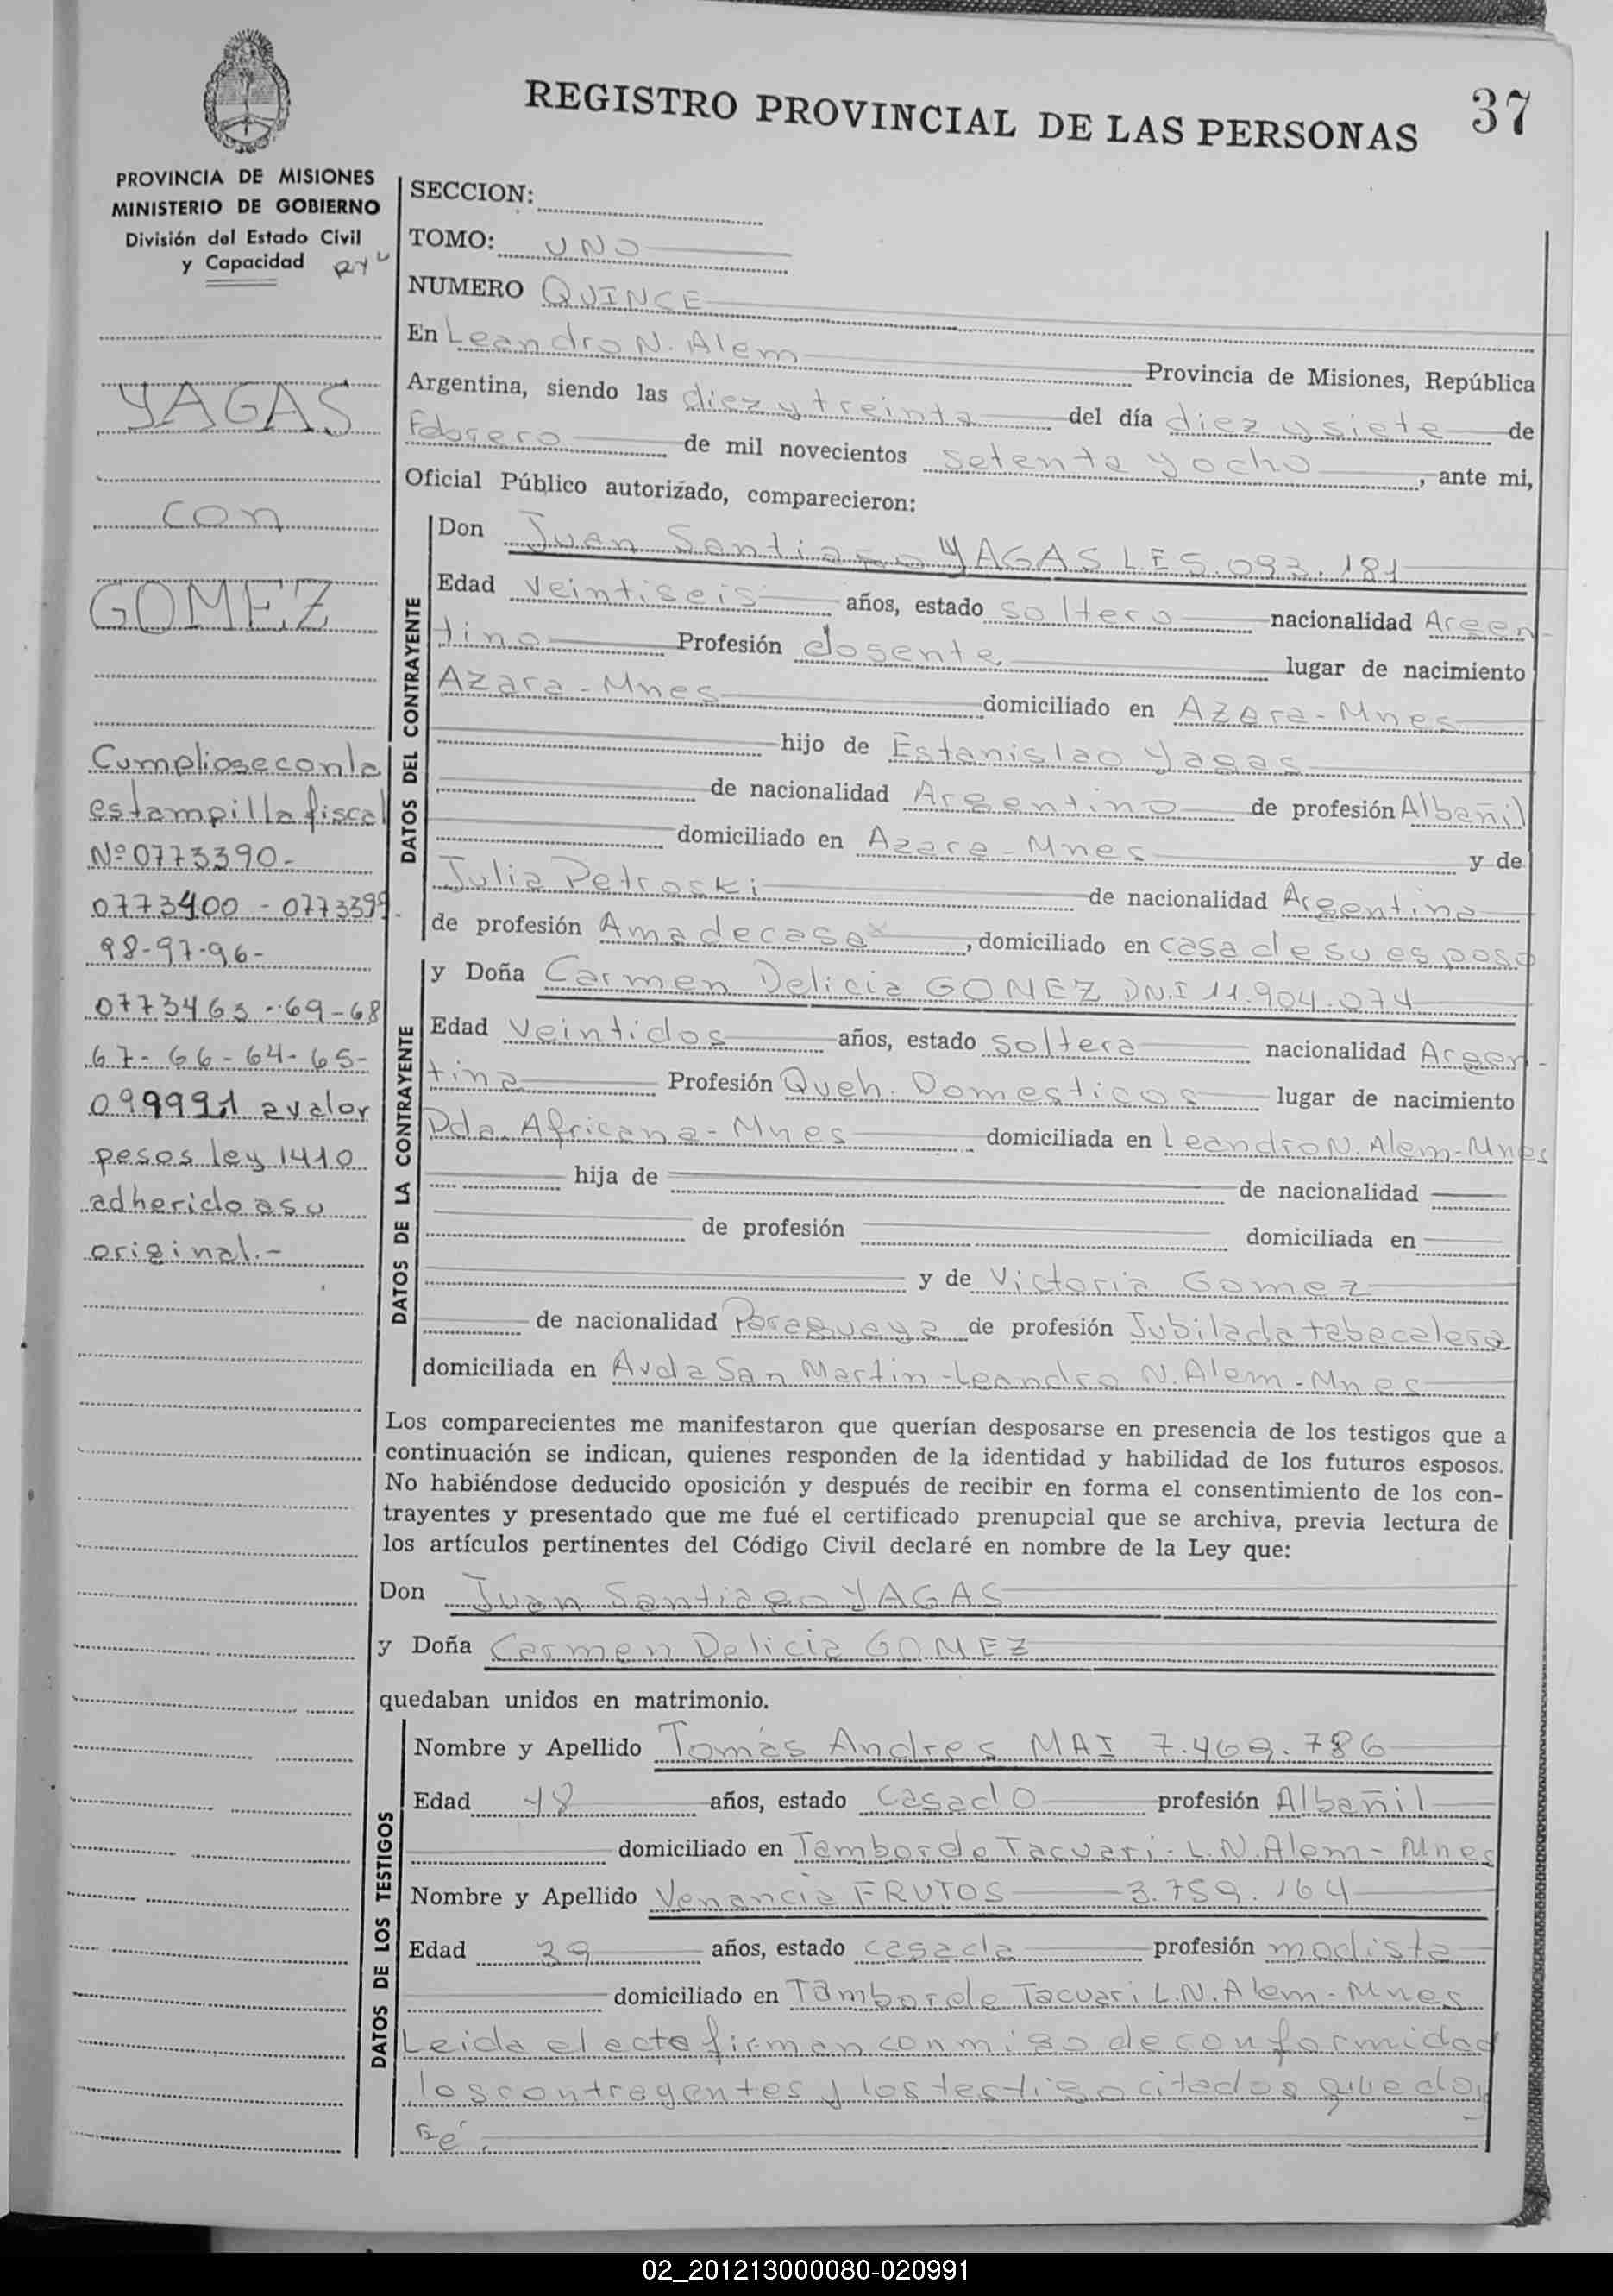 REGISTRO PROVINCIAL DE LAS PERSONAS
37
PROVINCIA DE MISIONES
MINISTERIO DE GOBIERNO
División del Estado Civil
y Capacidad
YAGAS
con
GOMEZ
Cumpliose con la
estampilla fiscal
Nº 0773390-
0773400 - 0773399-
98-97-96-
0773463 - 69-68
67- 66- 64- 65-
099991 a valor
pesos ley 1410
adherido a su
original.-
SECCION:
TOMO: UNO
NUMERO QUINCE
En Leandro N. Alem Provincia de Misiones, República
Argentina, siendo las diez y treinta del día diez y siete de
Febrero de mil novecientos setenta y ocho, ante mi,
Oficial Público autorizado, comparecieron:
DATOS DEL CONTRAYENTE
Don Juan Santiago YAGAS L.E 5.093.181
Edad Veintiseis años, estado soltero nacionalidad Argen-
tino Profesión dosente lugar de nacimiento
Azara-Mnes domiciliado en Azara-Mnes
hijo de Estanislao Yagas
de nacionalidad Argentino de profesión Albañil
domiciliado en Azara-Mnes y de
Julia Petroski de nacionalidad Argentina
de profesión Ama de casa, domiciliado en casa de su esposo
DATOS DE LA CONTRAYENTE
y Doña Carmen Delicia GOMEZ DN.I 11.904.074
Edad Veintidos años, estado soltera nacionalidad Argen-
tina Profesión Queh. Domesticos lugar de nacimiento
Pda. Africana-Mnes domiciliada en Leandro N. Alem-Mnes
hija de de nacionalidad
de profesión domiciliada en
y de Victoria Gomez
de nacionalidad Paraguaya de profesión Jubilada tabacalera
domiciliada en Avda San Martin-Leandro N. Alem-Mnes
Los comparecientes me manifestaron que querían desposarse en presencia de los testigos que a
continuación se indican, quienes responden de la identidad y habilidad de los futuros esposos.
No habiéndose deducido oposición y después de recibir en forma el consentimiento de los con-
trayentes y presentado que me fué el certificado prenupcial que se archiva, previa lectura de
los artículos pertinentes del Código Civil declaré en nombre de la Ley que:
Don Juan Santiago YAGAS
y Doña Carmen Delicia GOMEZ
quedaban unidos en matrimonio.
DATOS DE LOS TESTIGOS
Nombre y Apellido Tomás Andres MAI 7.469.786
Edad 48 años, estado casado profesión Albañil
domiciliado en Tambor de Tacuari - L.N. Alem - Mnes
Nombre y Apellido Venancia FRUTOS 3.759.164
Edad 39 años, estado casada profesión modista
domiciliado en Tambor de Tacuari L.N. Alem - Mnes
Leida el acta firman conmigo de conformidad
los contrayentes y los testigo citados que doy
Fé.
02_201213000080-020991